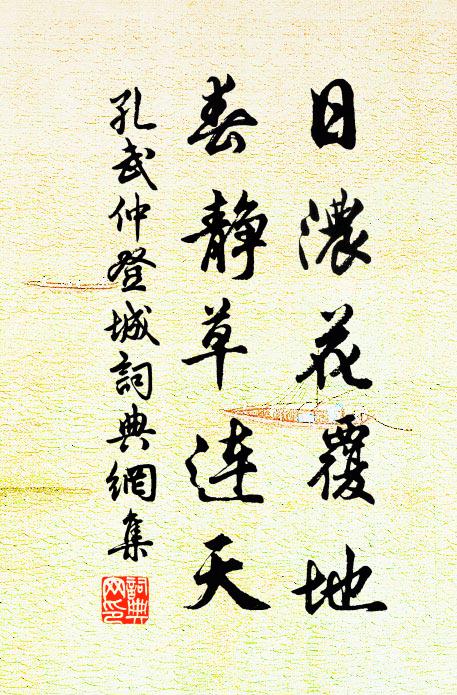 日濃花覆地
春静草連天
孔武仲登城詞典網集
詞典網印